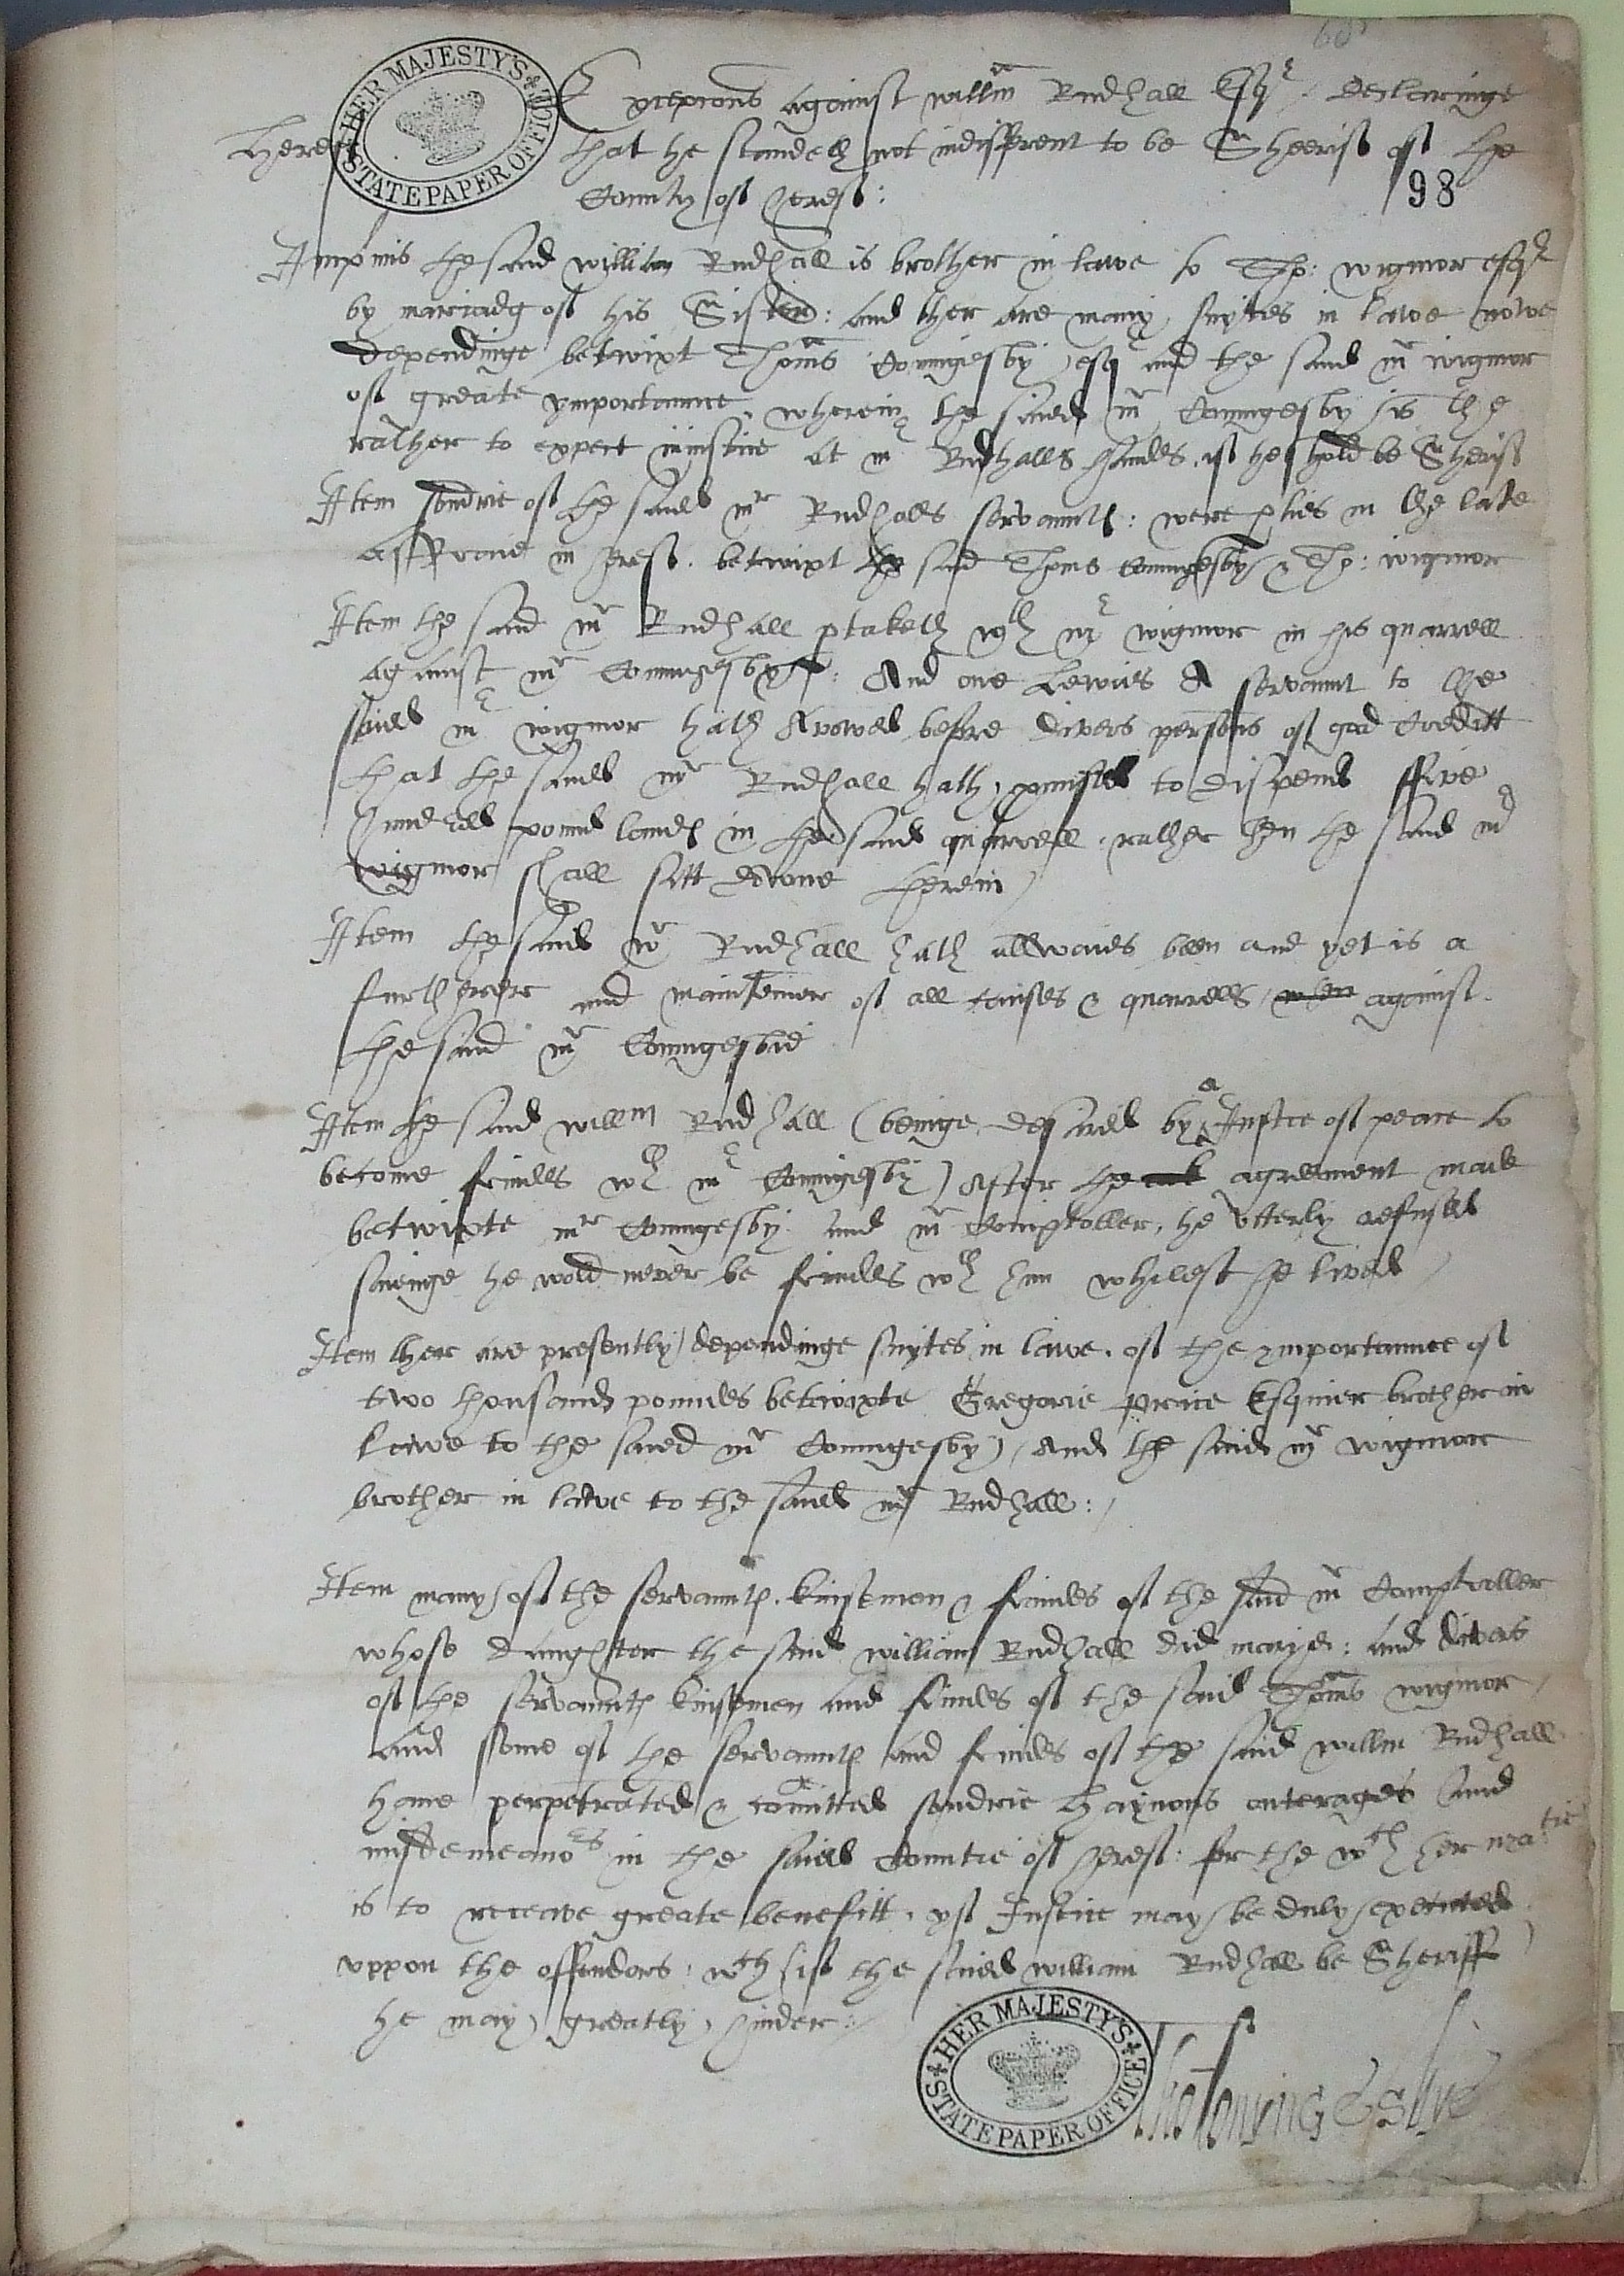 60
Exceptions against willm Rudhall Esqr declaringe
Heref that he standeth not indifferent to be Sheeriff of the
County of heref:
98
HER MAJESTY'S STATE PAPER OFFICE
Inprimis the said william Rudhall is brother in lawe to Tho: wigmor esqr
by mariadg of his Sister: and ther are many suytes in lawe nowe
dependinge betwixt Thoms Conningesby esqr and the said mr wigmor
of greate ymportannce, wherein the saied mr Conningesby is the
rather to expect iniustice at mr Rudhalls handes, if he shold be Sheriff
Item sondrie of the saied mr Rudhalls servauntes: were pties in the late
affraie in heref. betwixt the said Thoms Conningesby & Tho: wigmor
Item the said mr Rudhall ptaketh wth mr wigmor in his quarrell
against mr Conningesby: And one Lewies A servaunt to the
saied mr wigmor hath Avowed before divers persons of good Creditt
that the saied mr Rudhall hath pmised to dispend ffive
hundred pound landes in the said quarrell, rather then the said mr
wigmor shall sitt downe therein
Item the saied mr Rudhall hath allwaies been and yet is a
furtherer and mainteinor of all causes & quarrells when against
the said mr Conningesbie
Item the said willm Rudhall (beinge desired by a Justice of peace to
become frindes wth mr Conningesby) After the agreement made
betwixte mr Conningesby and mr Comptroller, he vtterly refused
saienge he wold never be frindes wth him whilest he lived
Item ther are presently dependinge suytes in lawe, of the ymportannce of
two thousand poundes betwixte Gregorie Price Esquier brother in
lawe to the saied mr Conningesby, And the said mr wigmor
brother in lawe to the saied mr Rudhall:
Item many of the servauntes, kinsemen & frindes of the said mr Comptroller
whose daughter the said william Rudhall did marye: and divers
of the servauntes kinsemen and frindes of the said Thoms wigmor,
and some of the servauntes and frindes of the said willm Rudhall
have perpetrated & comitted sondrie haynous outerages and
misdemeanors in the saied Countie of heref: for the wch her matie
is to receave greate benefitt, yf Justice may be duly executed
vppon the offendors: wch if the saied william Rudhall be Sheriff
he may greatly hinder:
HER MAJESTY'S STATE PAPER OFFICE
Tho Conyngesbye